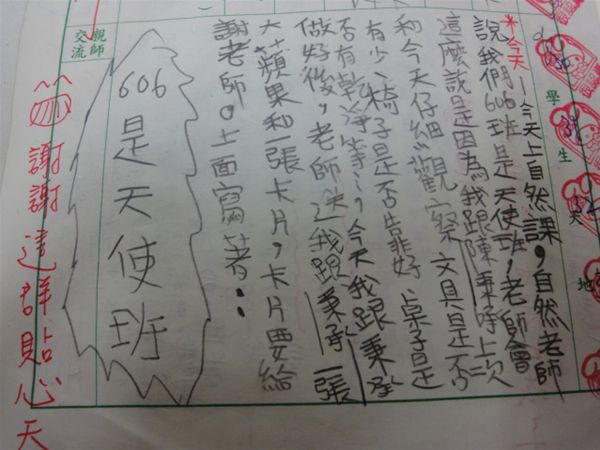 學生天地
*今天-今天上自然課，自然老師
說我們606班是天使班，老師會
這麼說是因為我跟陳秉承上次
和今天仔細觀察文具是否
有少、椅子是否靠好、桌子是
否有乾淨等…，今天我跟秉承
做好後，老師送我跟秉承一張
大蘋果和一張卡片，卡片要給
謝老師。上面寫著：
親師交流
606是天使班
謝謝這群貼心天